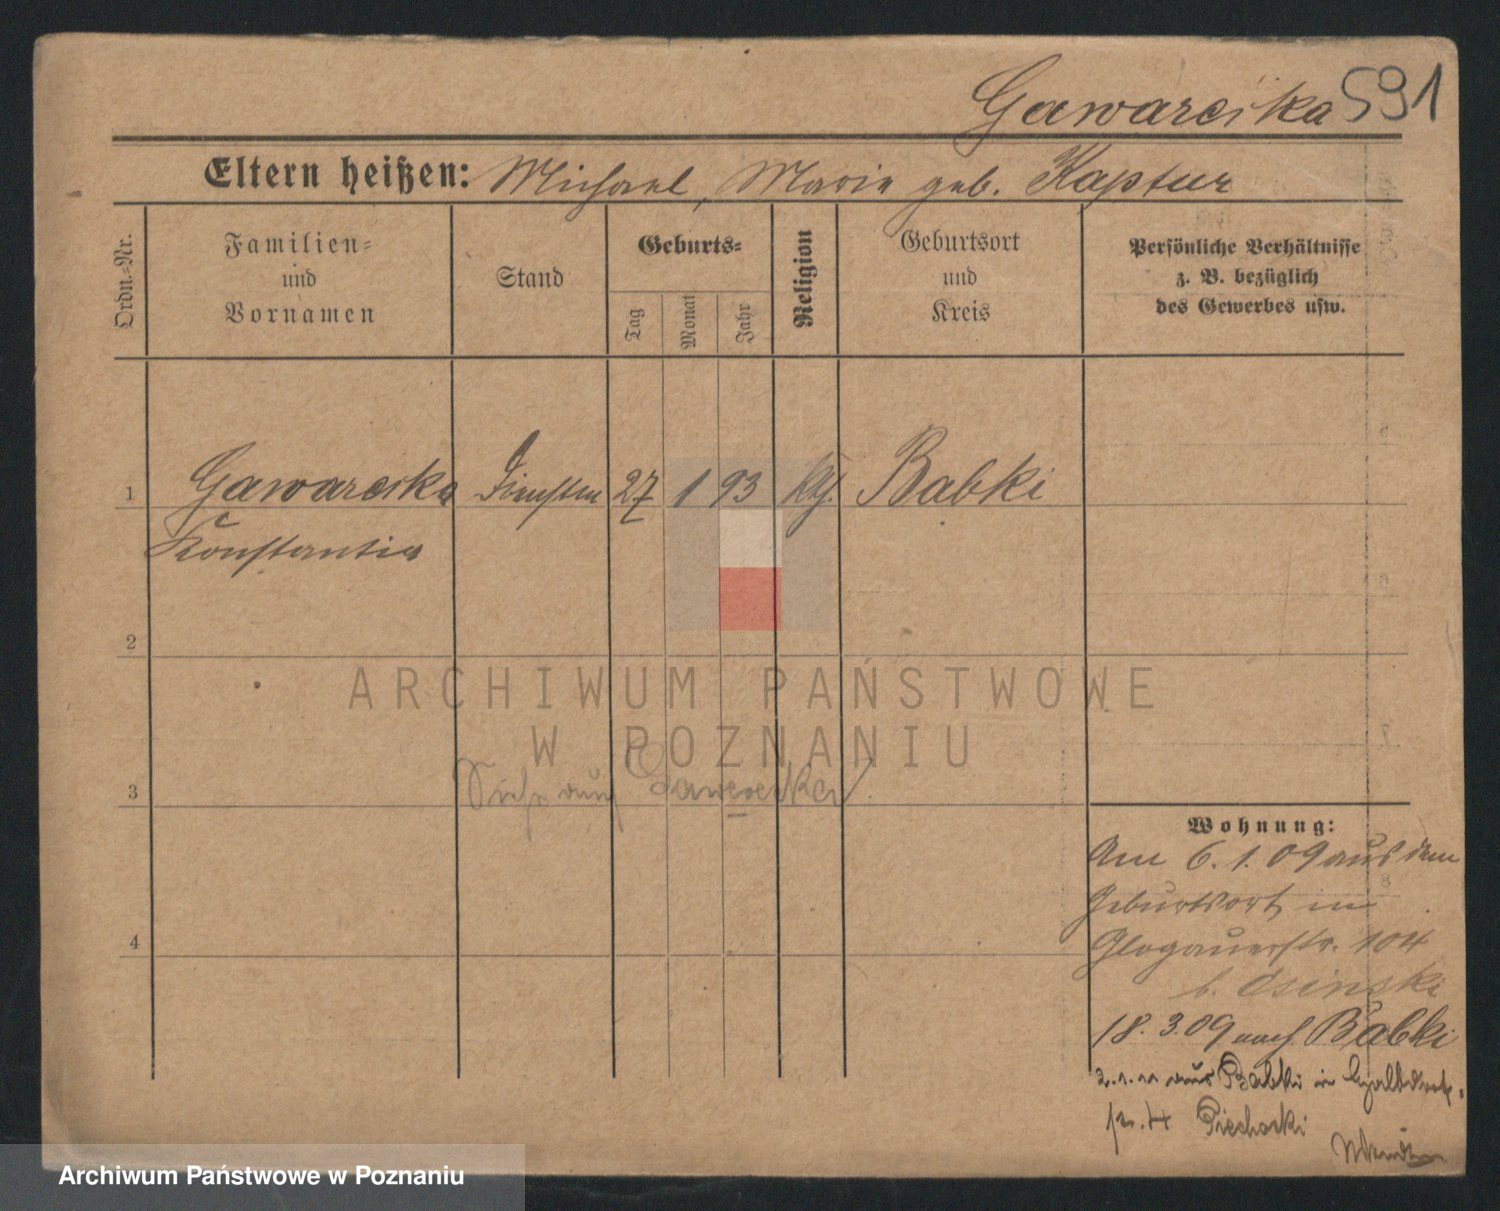 Gawarcika 591
Eltern heißen: Michael, Marie geb. Kaptur
Ordn.-Nr.
Familien-
und
Vornamen
Stand
Geburts-
Tag
Monat
Jahr
Religion
Geburtsort
und
Kreis
Persönliche Verhältnisse
z. B. bezüglich
des Gewerbes usw.
1 Gawarcika 27 1 93 kth. Babki
Konstantia
2
ARCHIWUM PAŃSTWOWE
W POZNANIU
3 Siehe auch
Wohnung:
Am 6. 1. 09 aus dem
Geburtsort in
4 Glogauerstr. 104
b. Osinski
18. 3. 09 nach Babki
2. 1. 11 aus Babki in
Piechocki
Archiwum Państwowe w Poznaniu